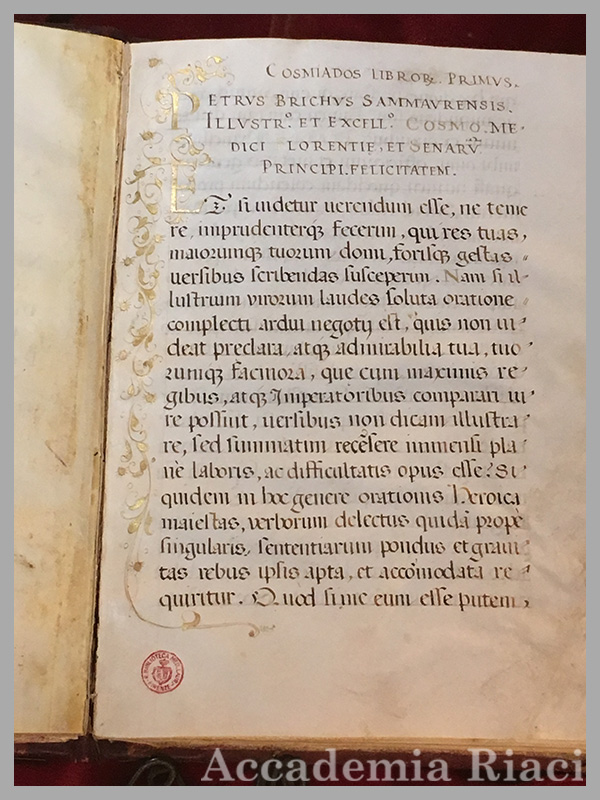 COSMIADOS LIBROR. PRIMVS.
PETRVS BRICHVS SAMMAVRENSIS.
ILLVSTR.º ET EXCELL.º COSMO. ME-
DICI LORENTIE, ET SENARV̄
PRINCIPI. FELICITATEM.
ET si uidetur uerendum esse, ne teme
re, imprudenterq; fecerim, qui res tuas,
maiorumq; tuorum domi, forisq; gestas
uersibus scribendas susceperim. Nam si il-
lustrium virorum laudes soluta oratione
complecti ardui negotij est, quis non ui-
deat preclara, atq; admirabilia tua, tuo
rumq; facinora, que cum maximis re-
gibus, atq; Imperatoribus comparari ui-
re possint, uersibus non dicam illustra-
re, sed summatim recẽsere immensi pla-
nè laboris, ac difficultatis opus esse? Si
quidem in hoc genere orationis Heroica
maiestas, verborum delectus quidã propè
singularis, sententiarum pondus et graui-
tas rebus ipsis apta, et accõmodata re-
quiritur. Quod si me eum esse putem,
Accademia Riaci